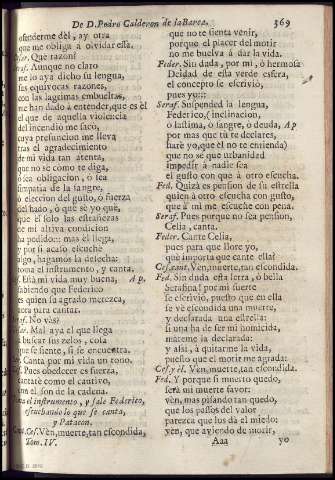 De D. Pedro Calderon de la Barca. 369
ofenderme dèl, ay otra
que me obliga à olvidar esta.
Feder. Que razon!
Seraf. Aunque no claro
me lo aya dicho su lengua,
sus equivocas razones,
con las lagrimas embueltas,
me han dado à entender, que es èl
el que de aquella violencia
del incendio me sacò,
cuya presuncion me lleva
tras el agradecimiento
de mi vida tan atenta,
que no sè como te diga,
ò sea obligacion, ò sea
simpatia de la sangre,
ò eleccion del gusto, ò fuerza
del hado, ò què sè yo què,
que èl solo las estrañeras
de mi altiva condicion
ha podido: mas èl llega,
y por si acaso escuchò
algo, hagamos la deshecha:
toma el instrumento, y canta.
Està mi vida muy buena, Ap.
sabiendo que Federico
es quien su agrado merezca,
aora para cantar.
Seraf. No vàs?
Mal aya el que llega
à buscar sus zelos, cosa
que se siente, si se encuentra.
Canta por mi vida un tono.
Pues obedecer es fuerza,
cantarè como el cautivo,
con el son de la cadena.
Toma el instrumento, y sale Federico,
escuchando lo que se canta,
y Patacon.
Cant. Ces. Vèn, muerte, tan escondida,
Tom. IV.
que no te sienta venir,
porque el placer del morir
no me buelva à dar la vida.
Feder. Sin duda, por mi, ò hermosa
Deidad de esta verde esfera,
el concepto se escriviò,
pues yo:::
Seraf. Suspended la lengua,
Federico, (inclinacion,
ò lastima, ò sangre, ò deuda, Ap
por mas que tu te declares,
harè yo, que èl no te entienda)
que no sè que urbanidad
impedir à nadie sea
el gusto con que à otro escucha.
Fed. Quizà es pension de su estrella
quien à otro escucha con gusto,
que à mi me escuche con pena.
Seraf. Pues porque no sea pension,
Celia, canta.
Feder. Cante Celia,
pues para que llore yo,
què importa que cante ella?
Ces. cant. Ven, muerte, tan escondida.
Fed. Sin duda esta letra, ò bella
Serafina! por mi suerte
se escriviò, puesto que en ella
se vè escondida una muerte,
y declarada una estrella:
si una ha de ser mi homicida,
mateme la declarada:
y assi, à quitarme la vida,
puesto que el morir me agrada:
Ces. y èl. Ven, muerte, tan escondida.
Fed. Y porque si muerto quedo,
serà mi muerte favor:
vèn, mas pisando tan quedo,
que los passos del valor
parezca que los dà el miedo:
vèn, que aviendo de morir,
Aaa yo